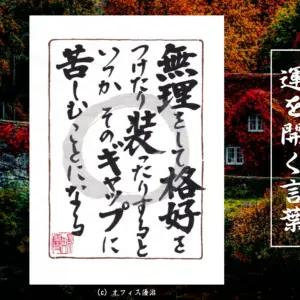 運を開く言葉
無理をして格好を
つけたり装ったりすると
いつか そのギャップに
苦しむことになる
(c) オフィス蓮沼